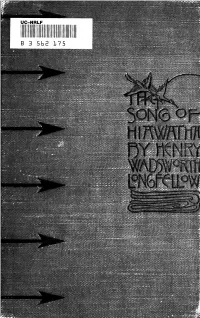 UC-NRLF
B 3 562 175
THE
SONG OF
HIAWATHA
BY HENRY
WADSWORTH
LONGFELLOW